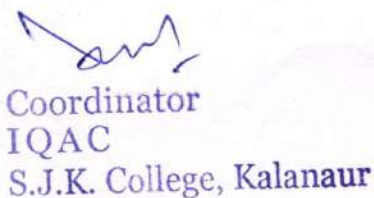 Coordinator
IQAC
S.J.K. College, Kalanaur